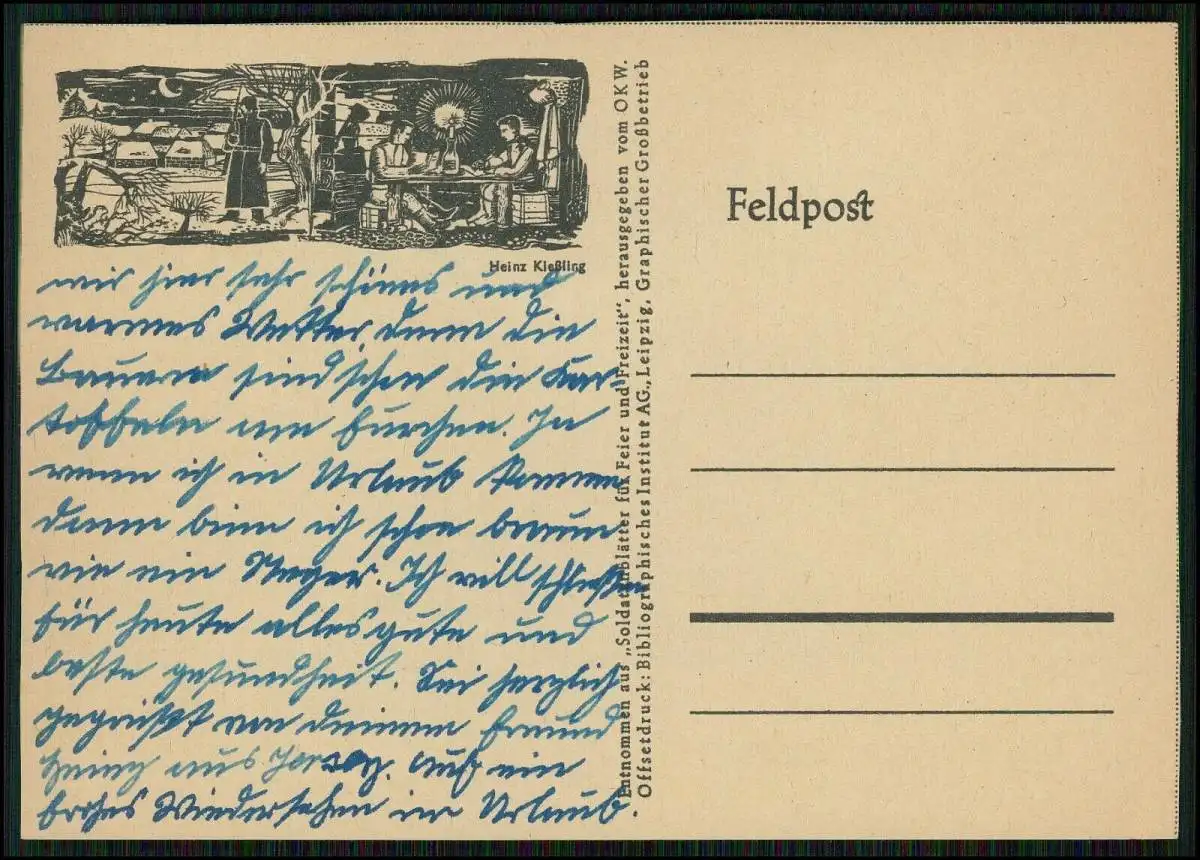 Heinz Kießling
wir hier sehr schönes und
warmes Wetter, denn die
Bauern sind schon die Kar-
toffeln am furchen. Ja
wenn ich in Urlaub komme
dann binn ich schon braun
wie ein Neger. Ich will schließen
für heute alles gute und
beste gesundheit. Sei herzlich
gegrüßt von deinem Freund
Heinz aus Auf ein
frohes Wiedersehen in Urlaub.
Entnommen aus „Soldatenblätter für Feier und Freizeit“, herausgegeben vom OKW.
Offsetdruck: Bibliographisches Institut AG., Leipzig, Graphischer Großbetrieb
Feldpost